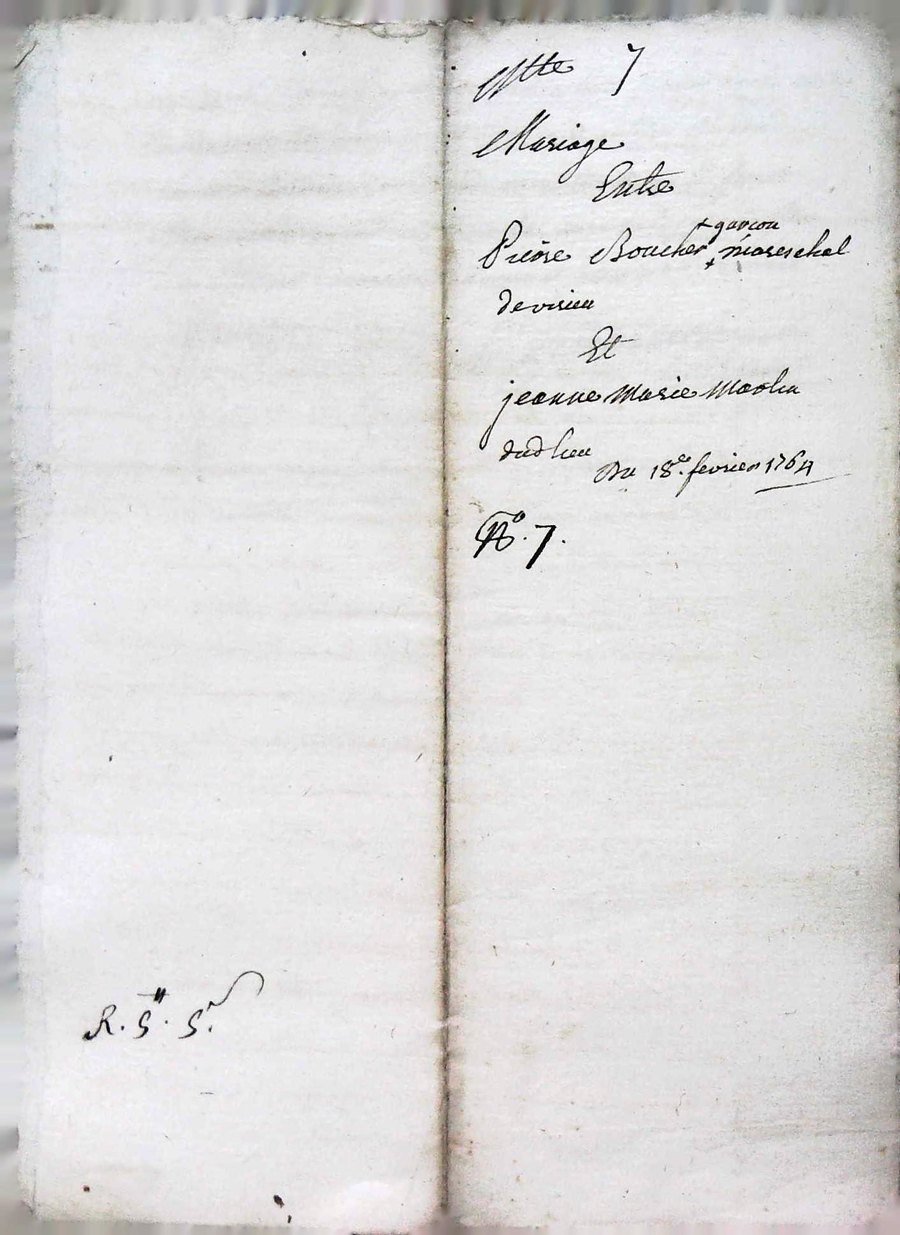 Cotte 7
Mariage
Entre
Pierre Boucher + garcon
+ mareschal
de virieu
Et
jeanne Marie
dud lieu
Du 18e. fevrier 1764
No. 7.
R. 5tt. 5s.